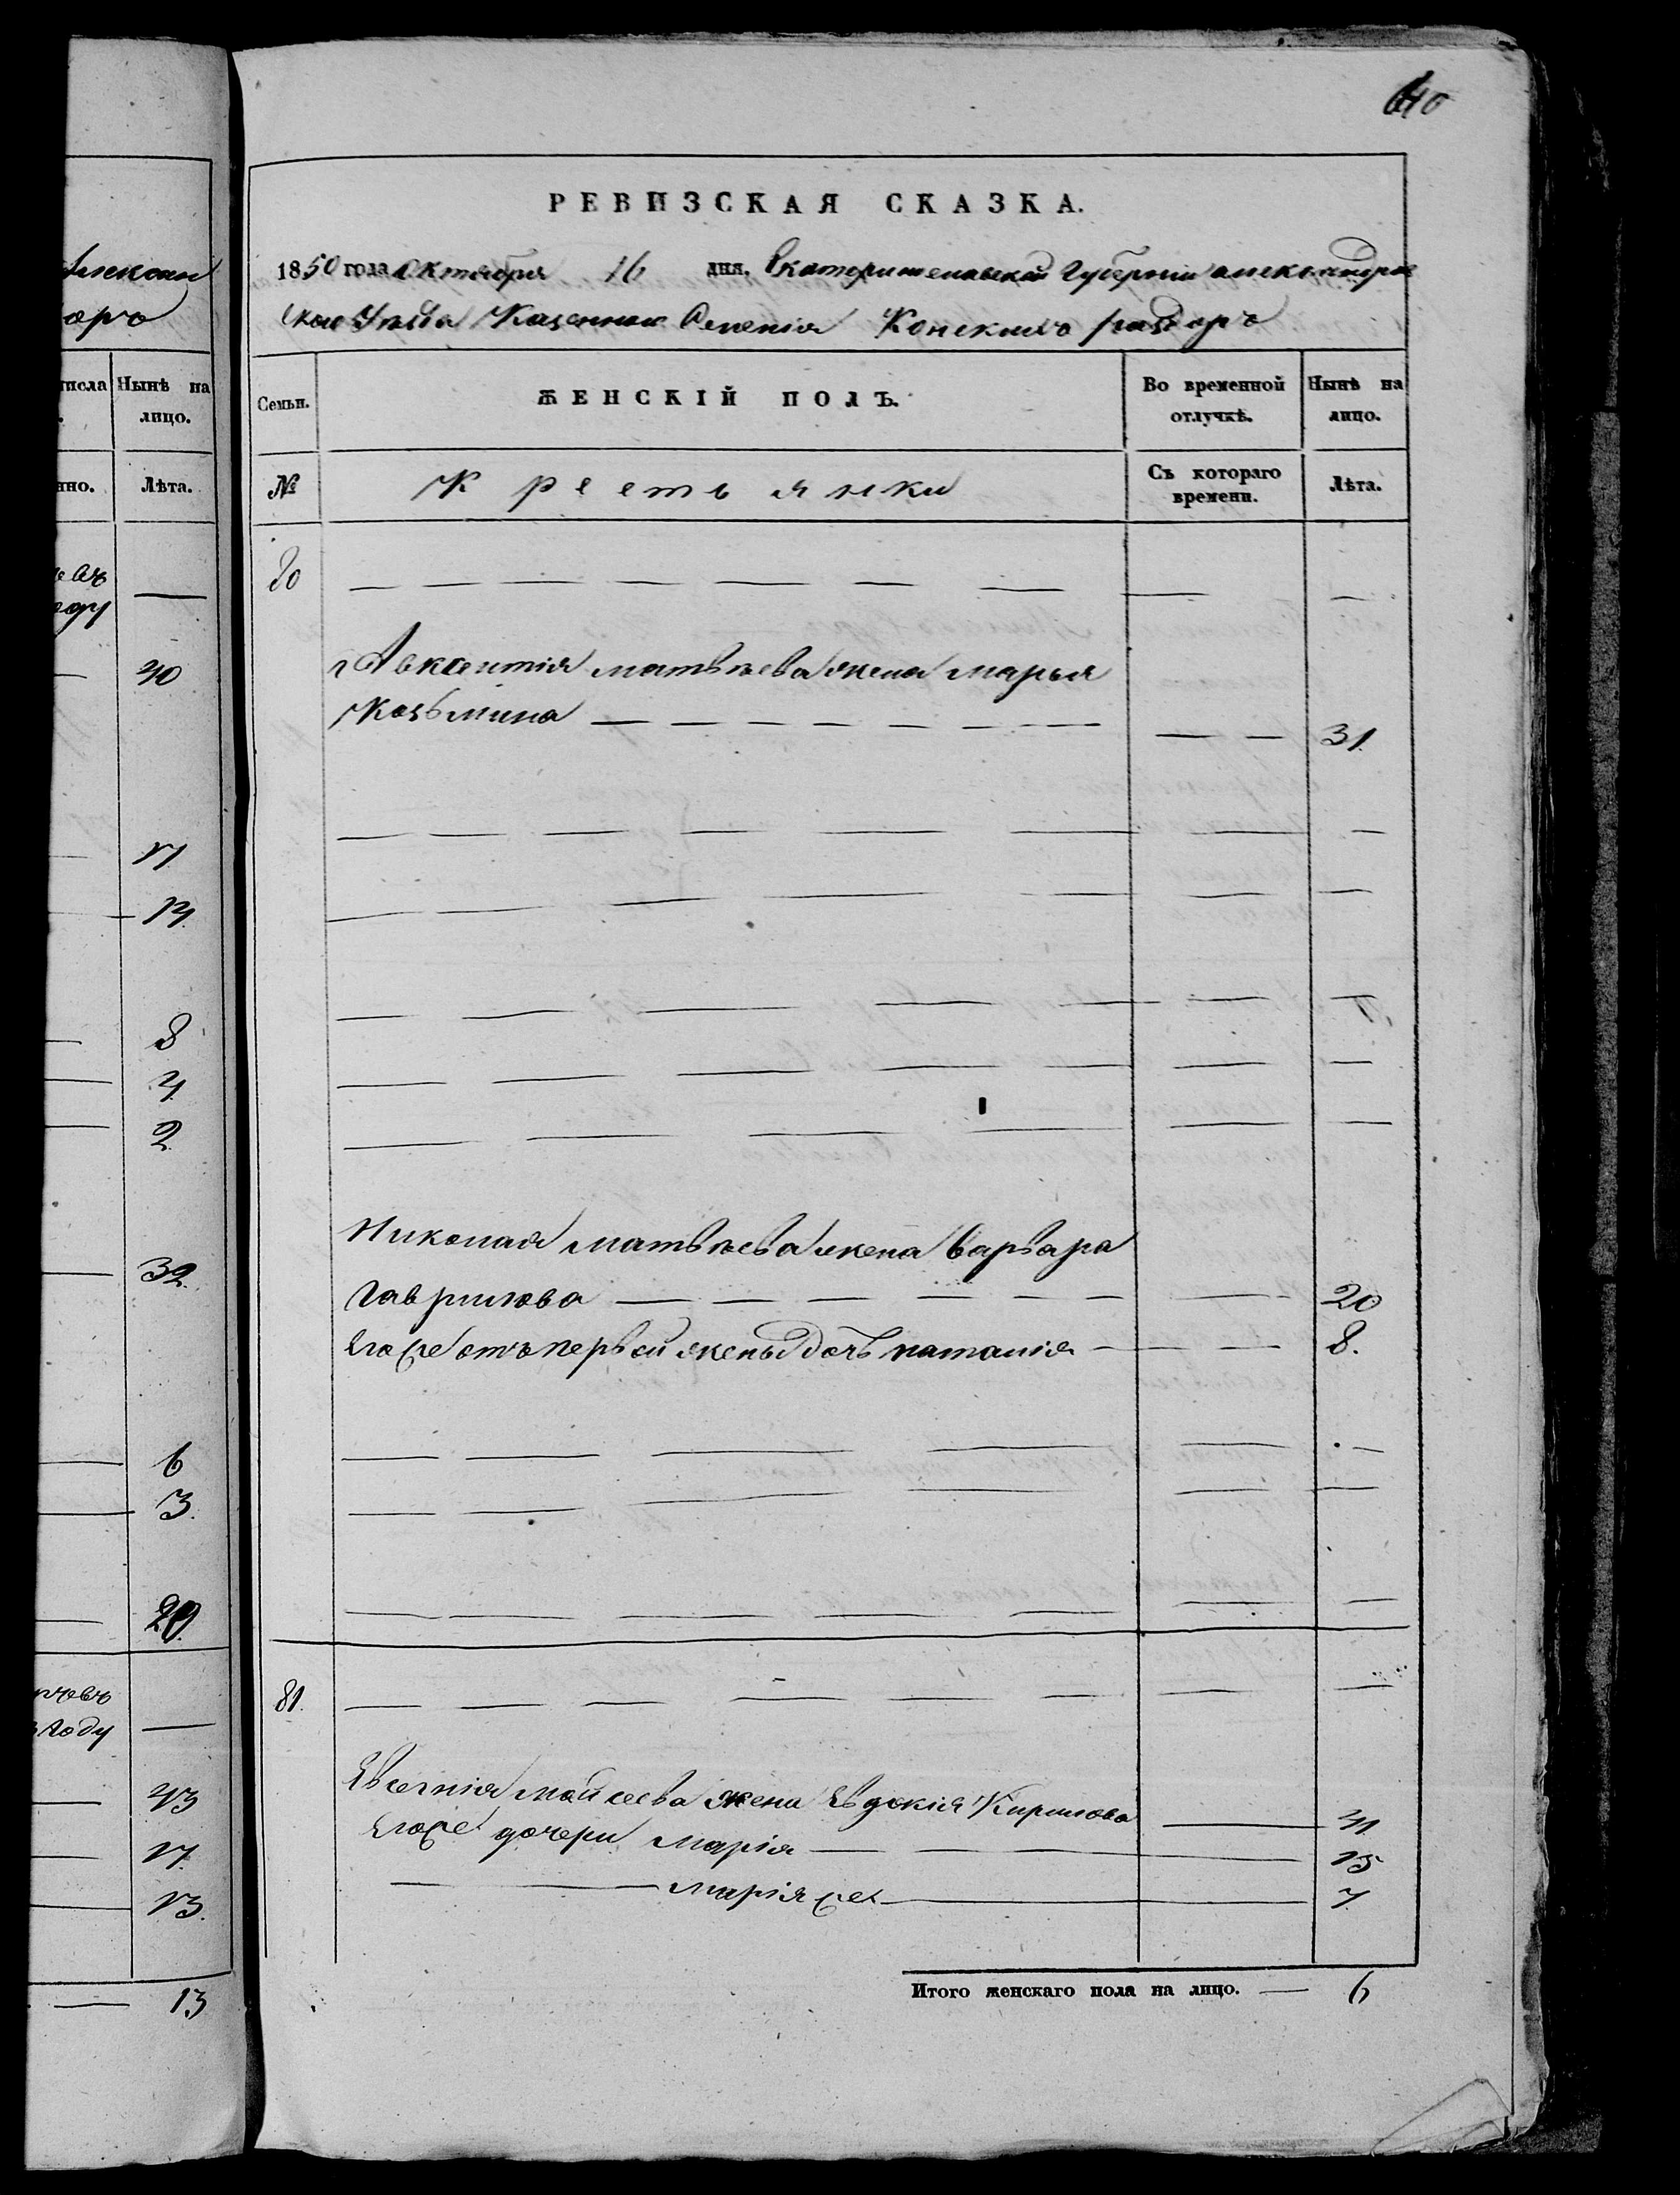 Алексан
оръ
числа Нынѣ на
лицо.
нно. Лѣта.
евъ
оду —
— 40
— 17
— 14.
— 8
— 4
— 2
— 32.
— 6
— 3.
— 20.
чевъ
Году —
— 43
— 17.
— 13.
— 13
640
РЕВИЗСКАЯ СКАЗКА.
1850 года Октября 16 дня. Екатеринославской Губерніи Александров
ской Уѣзда Казенной Селенія Конскихъ раздоръ
Семьи. ЖЕНСКІЙ ПОЛЪ. Во временной отлучкѣ. Нынѣ на лицо.
№ Крестьянки Съ котораго времени. Лѣта.
80 — — — — — — — — —
Авксентія Матвѣева жена Марья
Козьмина — — — — — — — — 31.
— — — — — — — — —
— — — — — — — —
— — — — — — —
— — — — — — —
— — — — — —
Николая Матвѣева жена Варвара
Гаврилова — — — — — — — 20
Егоже отъ первой жены дочь Наталія — — — 8.
— — — — — —
— — — — — —
— — — — — — —
81. — — — — — — — —
Евсегнія Мойсеева жена Евдокія Кирилова — 41
Егоже дочери Марія — — — 15
— — Марія же — 7
Итого женскаго пола на лицо. — 6